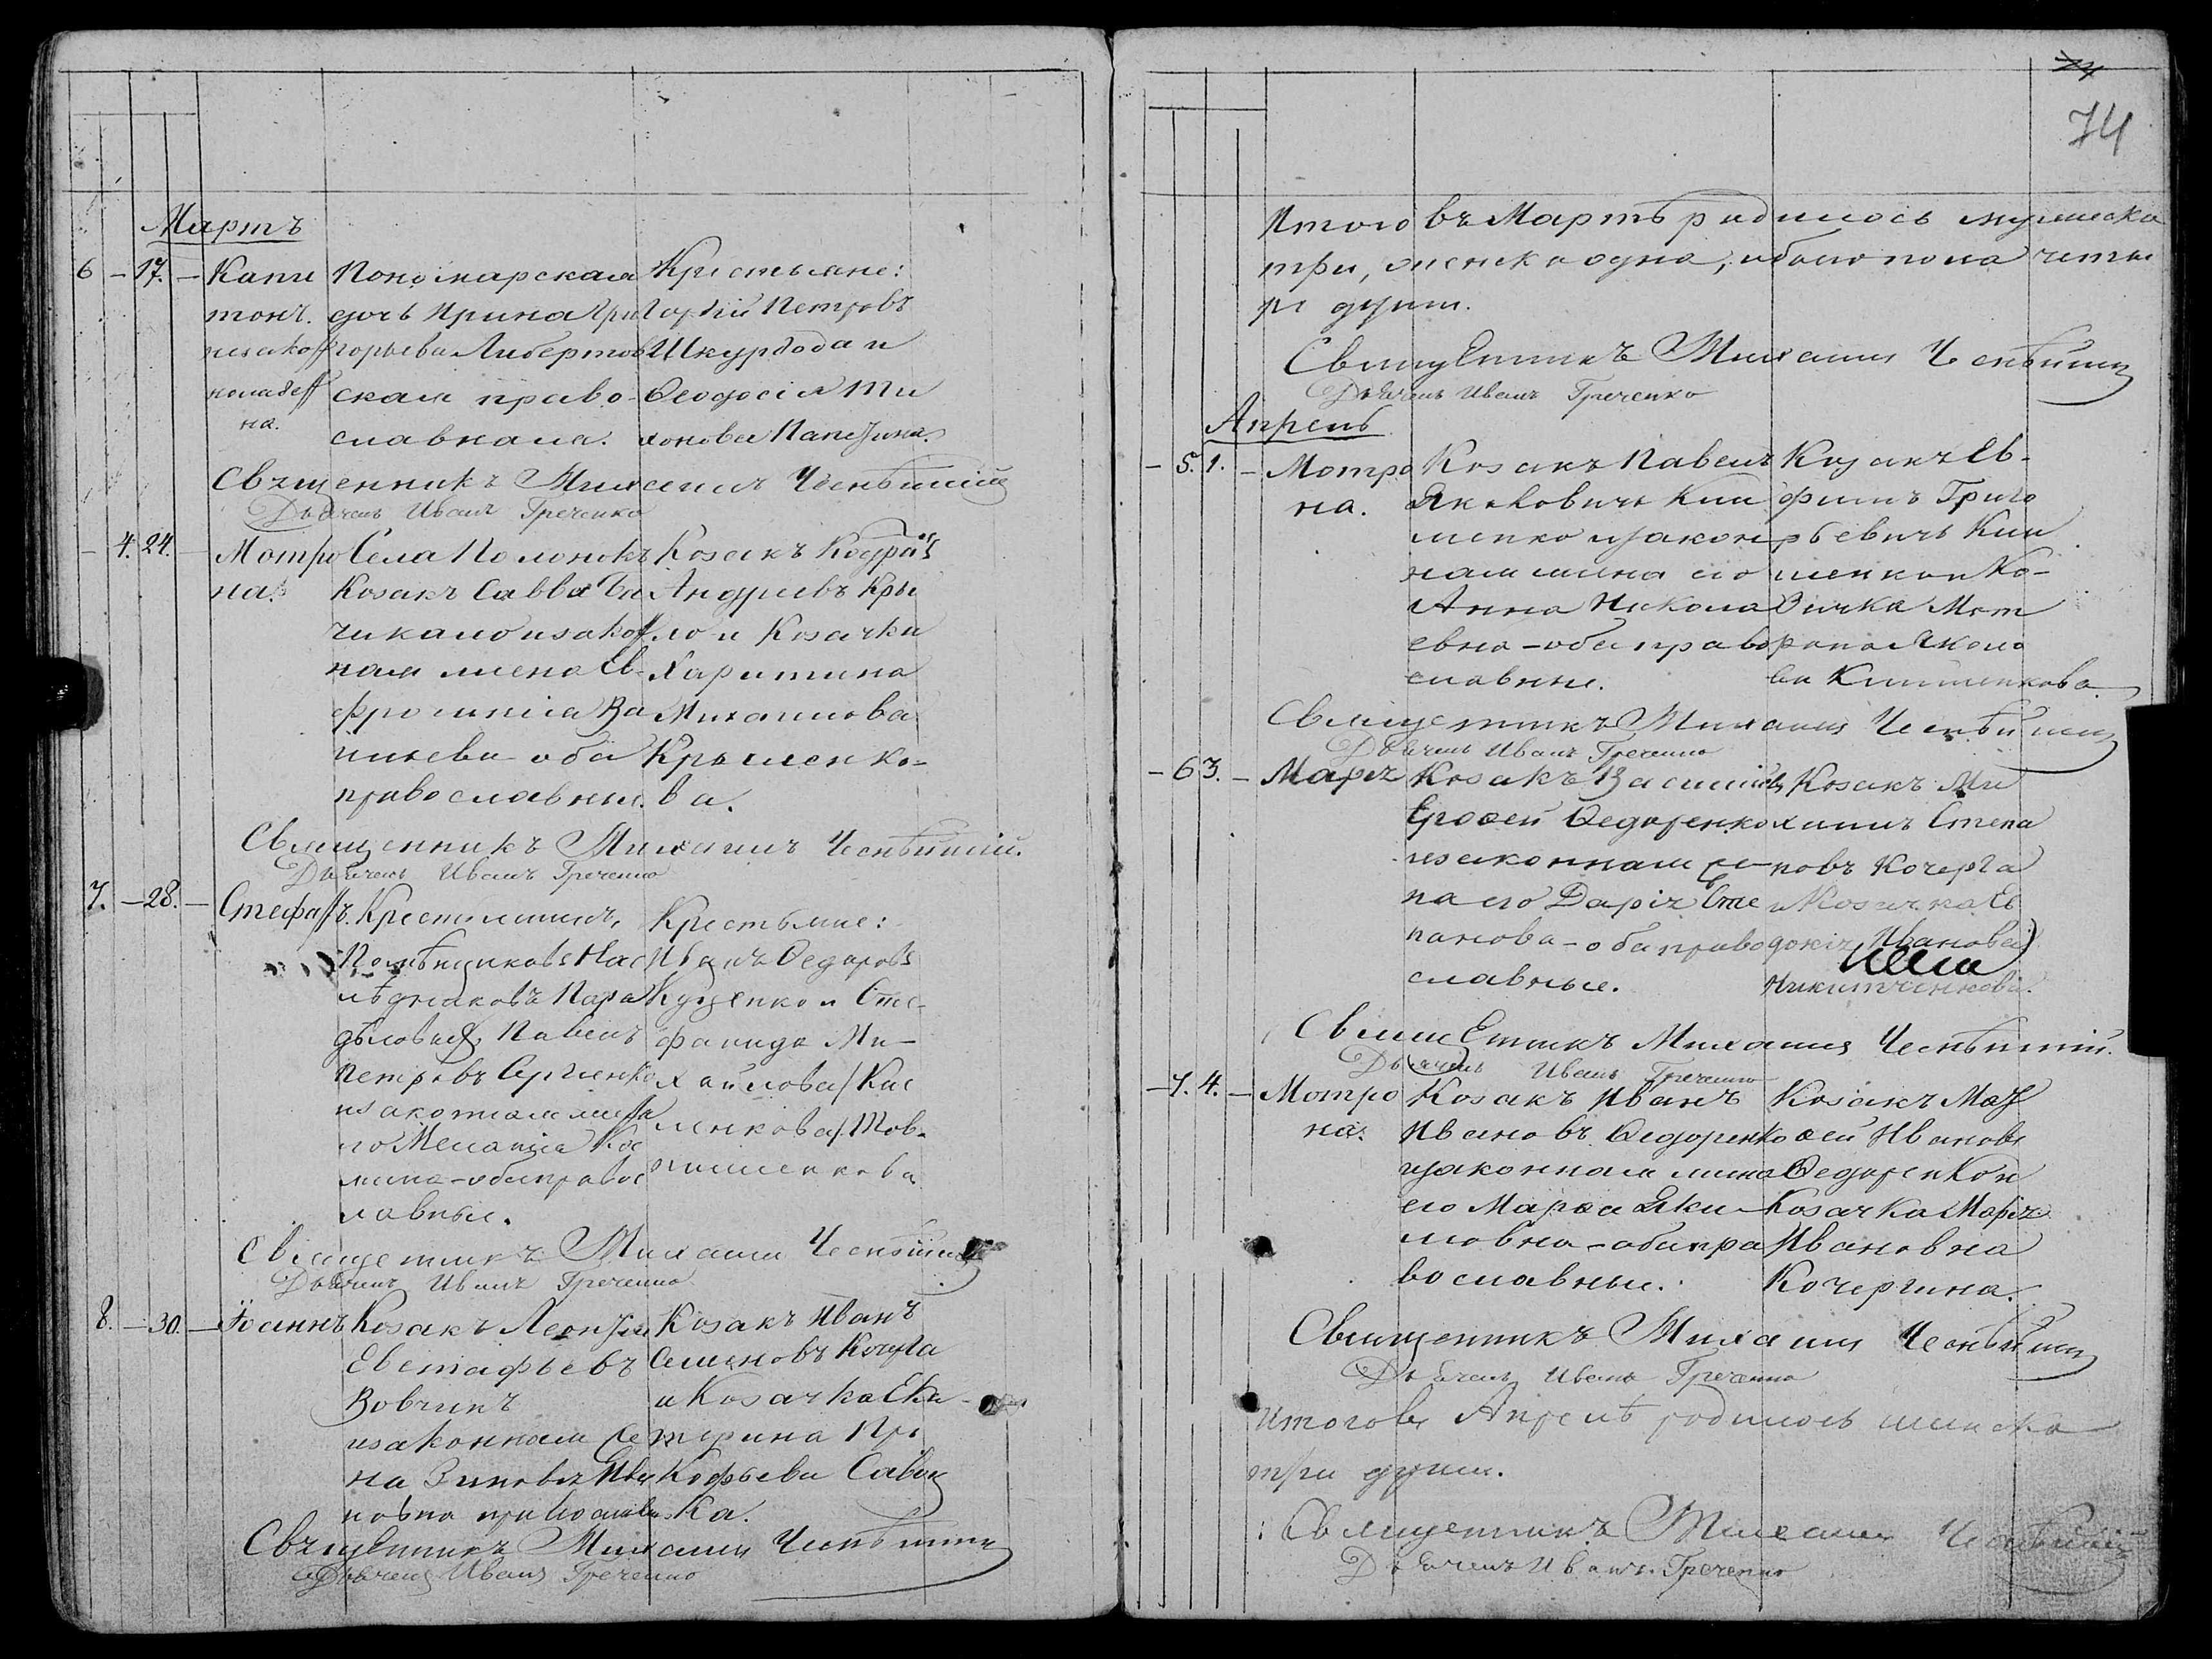 Мартъ
6 - 17. - Капи
тонъ.
незакон
норожден
на.
Пономарская
дочь Ирина Гри
горьева Либертов
ская право-
славная.
Крестьяне:
Гордій Петровъ
Шкурдода и
Ѳеодосія Ти
хонова
Священникъ Михаилъ
Дьячекъ Иванъ Греченко
- 4. 24. - Мотро
на.
Села
Козакъ Савва Ба
чикало и закон
ная жена Ев-
фросинія Ва
сильева оба
православные.
Козакъ Кодратъ
Андреевъ Кры
ло и Козачка
Харитина
Михаилова
Крыленко-
ва.
Священникъ Михаилъ
Дьячекъ Иванъ Греченко
7. - 28. - Стефанъ.
Крестьянинъ,
Помѣщиковъ Нас
лѣдниковъ Пара
дѣловыхъ Павелъ
Петровъ Сергіенко
и законная жена
его Меланія Кос
мина - оба правос
лавные.
Крестьяне:
Иванъ Ѳедоровъ
Куценко и Сте-
фанида Ми-
хайлова
Священникъ Михаилъ
Дьячекъ Иванъ Греченко
8. - 30. - Іоаннъ
Козакъ Леонтій
Евстафьевъ
Вовчикъ
и законная же
на Зиновія Ива
новна православн.
Козакъ Иванъ
Семеновъ Кочерга
и Козачка Ека
терина Про
кофьева Савиц
ка.
Священникъ Михаилъ
Дьячекъ Иванъ Греченко
74
74
Итого въ Мартѣ родилось мужеска
три, женска одна, обоего пола четы
ре души.
Священникъ Михаилъ
Дьячекъ Иванъ Греченко
Апрель
- 5. 1. - Мотро
на.
Козакъ Павелъ
Яковлевичъ Кли
менко и закон
ная жена его
Анна Никола
евна - оба право
славные.
Козакъ Ев-
фимъ Григо
рьевичъ Кли
менко и Ко-
зачка Мат
рона Яковле
ва Клименкова
Священникъ Михаилъ
Дьячекъ Иванъ Греченко
- 6 3. - Марія
Козакъ Василій
Ероѳей Ѳедоренко
и законная же
на его Дарія Сте
панова - оба право
славные.
Козакъ Ми
хаилъ Степа
новъ Кочерга
и Козачка Ев
докія Иванова
Никитченкова.
Священникъ Михаилъ
Дьячекъ Иванъ Греченко
- 7. 4. - Мотро
на.
Козакъ Иванъ
Ивановъ Ѳедоренко
и законная жена
его Марѳа Яки
мовна - оба пра
вославные.
Козакъ Мат
ѳей Ивановъ
Ѳедоренко и
Козачка Марія
Ивановна
Кочергина.
Священникъ Михаилъ
Дьячекъ Иванъ Греченко
Итого въ Апрелѣ родилось женска
три души.
Священникъ Михаилъ
Дьячекъ Иванъ Греченко